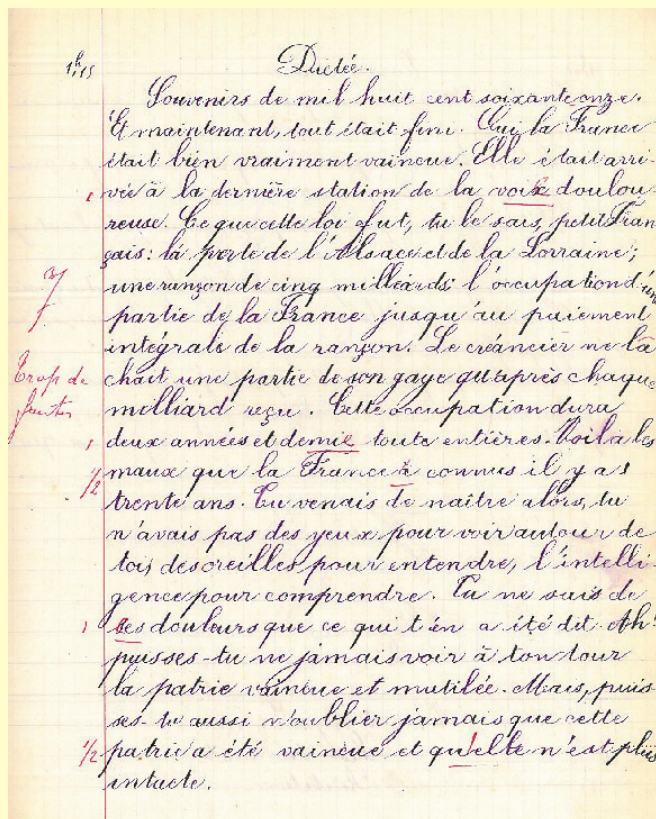 1h,15
Dictée.
Souvenirs de mil huit cent soixante onze.
Et maintenant, tout était fini. Oui la France
était bien vraiment vaincue. Elle était arri-
1 vée à la dernière station de la voix doulou-
reuse. Ce que cette loi fut, tu le sais, petit Fran
çais: la perte de l'Alsace et de la Lorraine;
une rançon de cinq milliards; l'occupation d'une
partie de la France jusqu'au paiement
intégrale de la rançon. Le créancier ne lâ
Trop de chait une partie de son gage qu'après chaque
fautes milliard reçu. Cette occupation dura
1 deux années et demie toute entières. Voilà les
1/2 maux que la France a connus il y a
trente ans. Tu venais de naître alors, tu
n'avais pas des yeux pour voir autour de
toi, des oreilles pour entendre, l'intelli-
gence pour comprendre. Tu ne sais de
1 ces douleurs que ce qui t'en a été dit. Ah!
puisses-tu ne jamais voir à ton tour
la patrie vaincue et mutilée. Mais, puis-
ses-tu aussi n'oublier jamais que cette
1/2 patrie a été vaincue et qu'elle n'est plus
intacte.